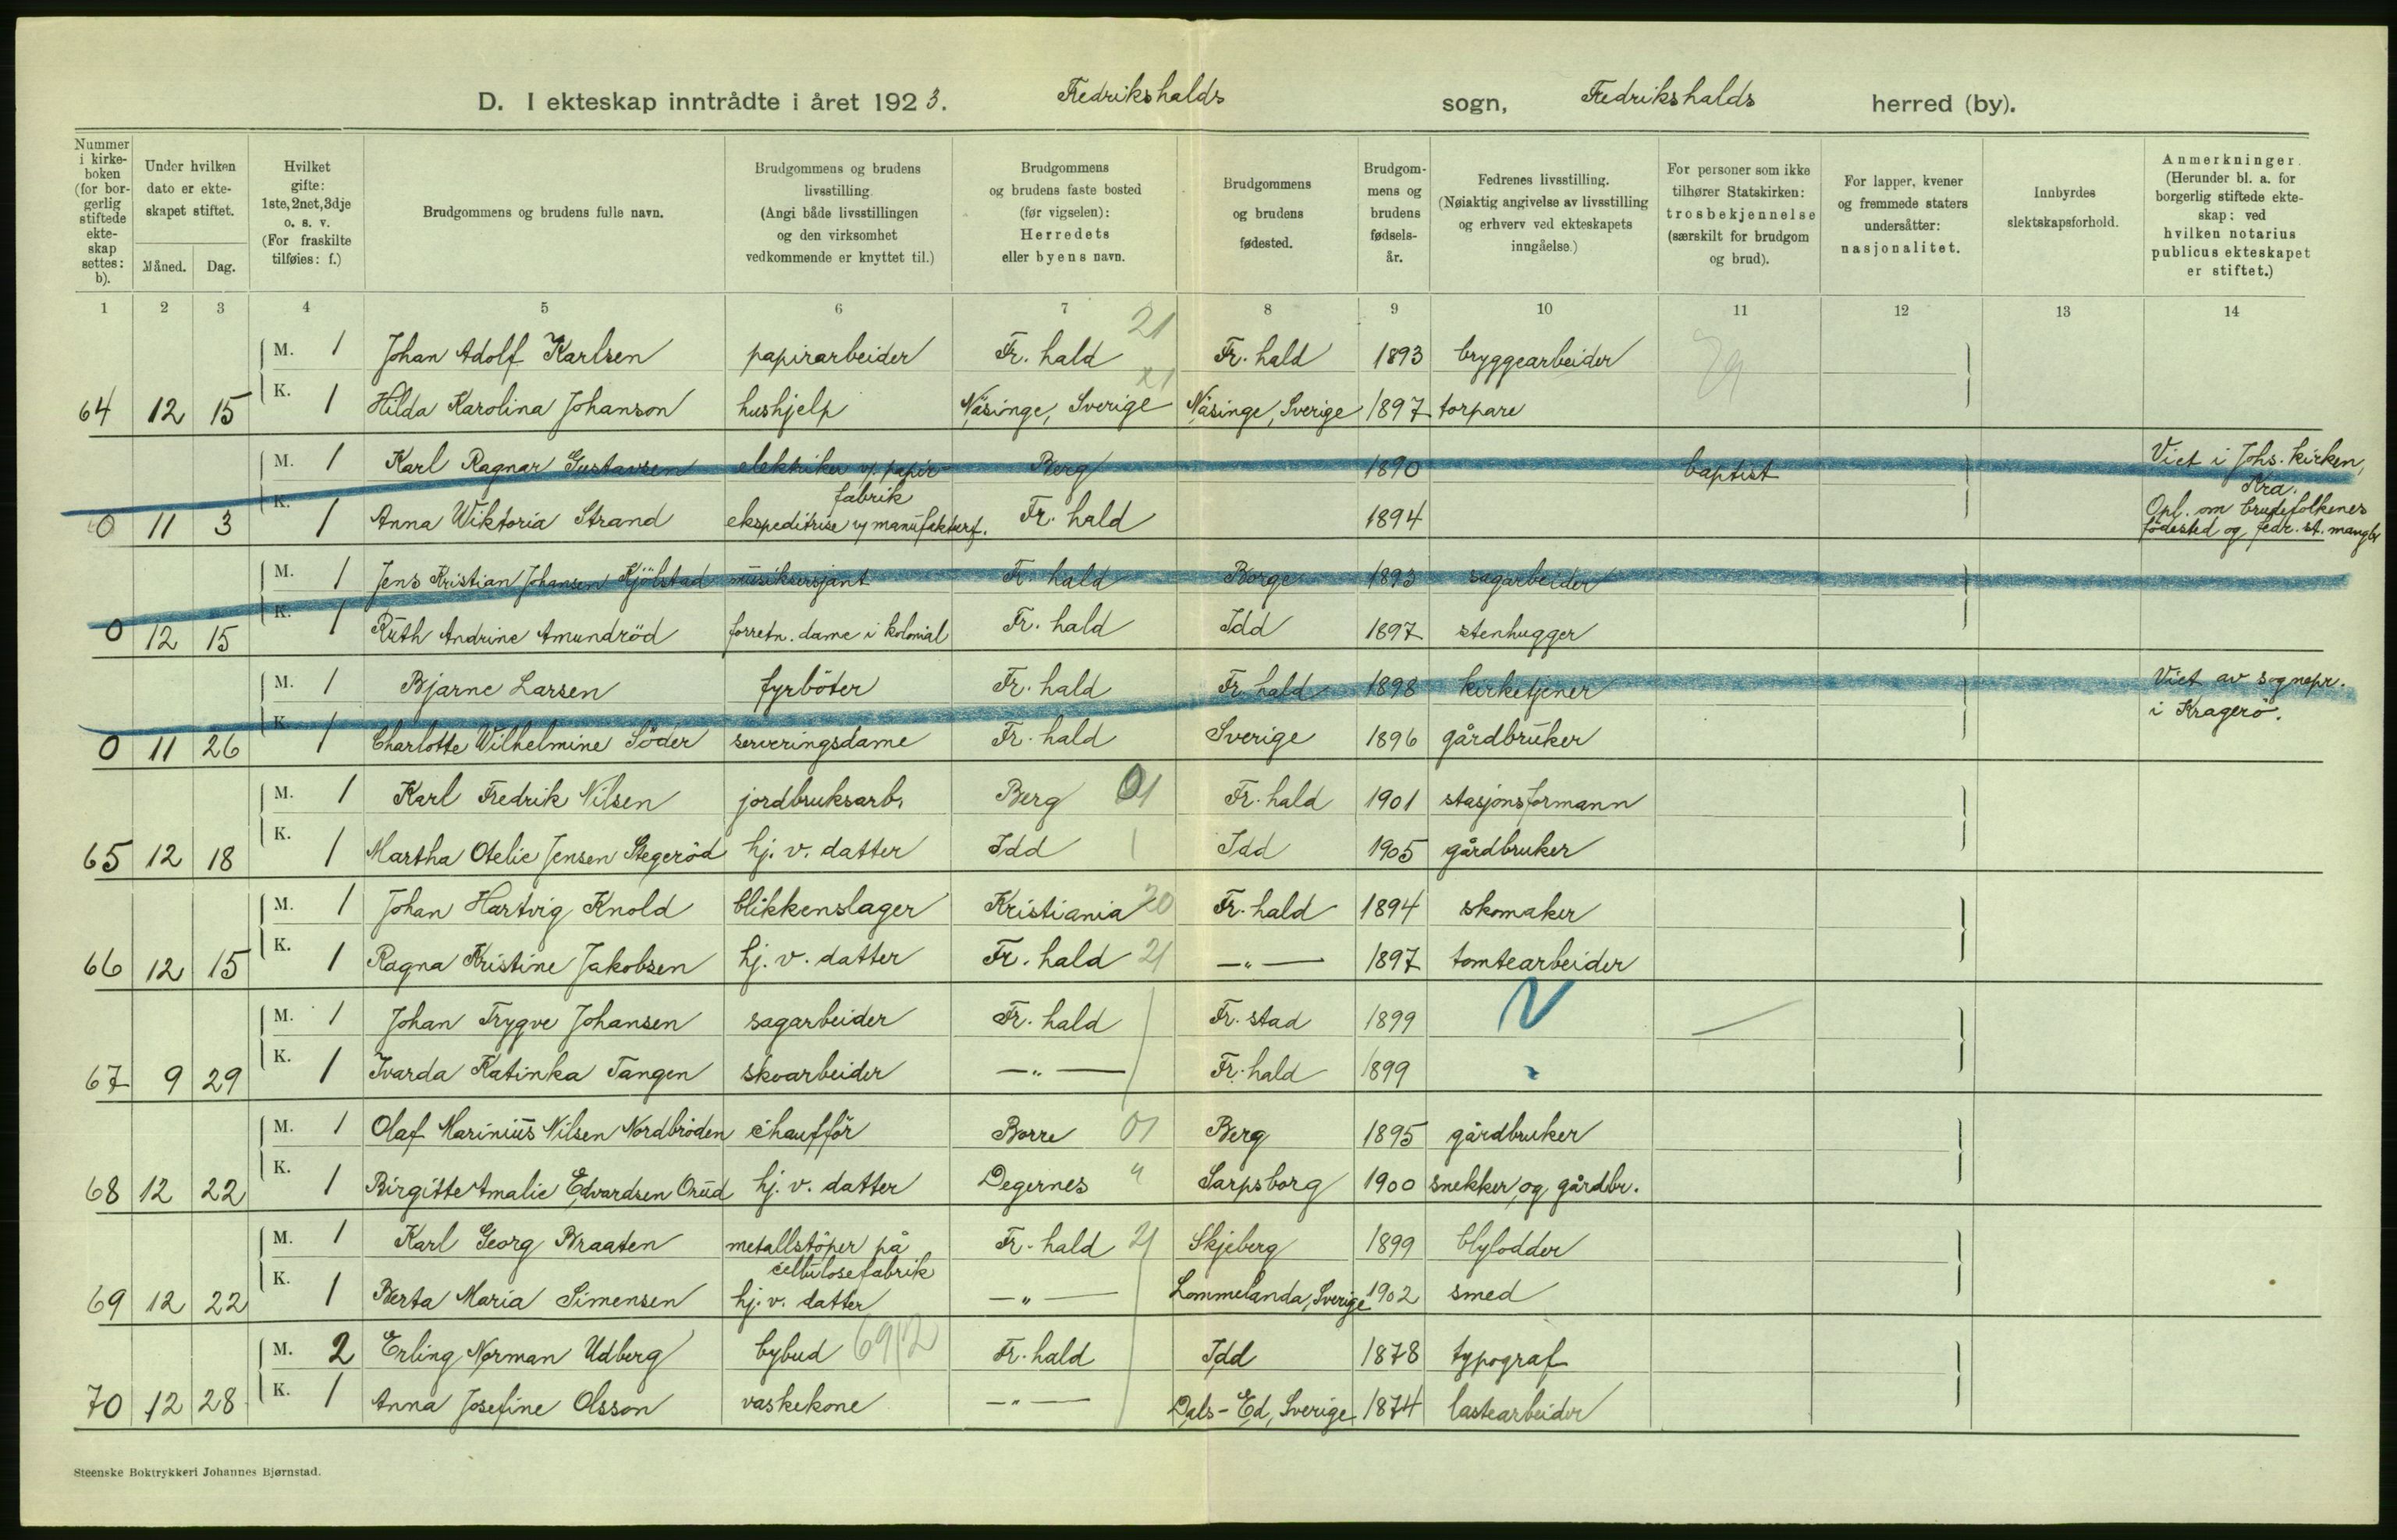 D. I ekteskap inntrådte i året 1923. Fredrikshalds sogn, Fredrikshalds herred (by).
Nummer i kirkeboken (for borgerlig stiftede ekteskap settes: b).
Under hvilken dato er ekteskapet stiftet.
Måned. Dag.
Hvilket gifte: 1ste, 2net, 3dje o. s. v. (For fraskilte tilføies: f.)
Brudgommens og brudens fulle navn.
Brudgommens og brudens livsstilling. (Angi både livsstillingen og den virksomhet vedkommende er knyttet til.)
Brudgommens og brudens faste bosted (før vigselen): Herredets eller byens navn.
Brudgommens og brudens fødested.
Brudgommens og brudens fødselsår.
Fedrenes livsstilling. (Nøiaktig angivelse av livsstilling og erhverv ved ekteskapets inngåelse.)
For personer som ikke tilhører Statskirken: trosbekjennelse (særskilt for brudgom og brud).
For lapper, kvener og fremmede staters undersåtter: nasjonalitet.
Innbyrdes slektskapsforhold.
Anmerkninger. (Herunder bl. a. for borgerlig stiftede ekteskap: ved hvilken notarius publicus ekteskapet er stiftet.)
1 2 3 4 5 6 7 8 9 10 11 12 13 14
M. 1 Johan Adolf Karlsen papirarbeider Fr. hald 21 Fr. hald 1893 bryggearbeider
64 12 15 K. 1 Hilda Karolina Johanson hushjelp Näsinge, Sverige Näsinge, Sverige 1897 torpare
M. 1 Karl Ragnar Gustavsen elektriker v/ papir- fabrik Berg 1890 baptist Viet i Johs. kirken, Kra.
0 11 3 K. 1 Anna Wiktoria Strand ekspeditrise v/ manufakturf. Fr. hald 1894 Opl. om brudefolkenes fødested og fedr. st. mangler
M. 1 Jens Kristian Johansen Kjölstad musiksersjant Fr. hald Borge 1893 sagarbeider
0 12 15 K. 1 Ruth Andrine Amundröd forretn. dame i kolonial Fr. hald Idd 1897 stenhugger
M. 1 Bjarne Larsen fyrböter Fr. hald Fr. hald 1898 kirketjener Viet av sognepr. i Kragerö.
0 11 26 K. 1 Charlotte Wilhelmine Söder serveringsdame Fr. hald Sverige 1896 gårdbruker
M. 1 Karl Fredrik Nilsen jordbruksarb. Berg 01 Fr. hald 1901 stasjonsformann
65 12 18 K. 1 Martha Otelie Jensen Stegeröd hj. v. datter Idd Idd 1905 gårdbruker
M. 1 Johan Hartvig Knold blikkenslager Kristiania 20 Fr. hald 1894 skomaker
66 12 15 K. 1 Ragna Kristine Jakobsen hj. v. datter Fr. hald 21 —"— 1897 tomtearbeider
M. 1 Johan Trygve Johansen sagarbeider Fr. hald Fr. stad 1899
67 9 29 K. 1 Ivarda Katinka Tangen skoarbeider —"— Fr. hald 1899
M. 1 Olaf Marinius Nilsen Nordbröden chaufför Borre 01 Berg 1895 gårdbruker
68 12 22 K. 1 Birgitte Amalie Edvardsen Orud hj. v. datter Degernes " Sarpsborg 1900 snekker og gårdbr.
M. 1 Karl Georg Braaten metallstöper på cellulosefabrik Fr. hald 21 Skjeberg 1899 blylodder
69 12 22 K. 1 Berta Maria Simensen hj. v. datter —"— Lommelanda, Sverige 1902 smed
M. 2 Erling Norman Udberg bybud 69/12 Fr. hald Idd 1878 typograf
70 12 28 K. 1 Anna Josefine Olsson vaskekone —"— Dals-Ed, Sverige 1874 lastearbeider
Steenske Boktrykkeri Johannes Bjørnstad.